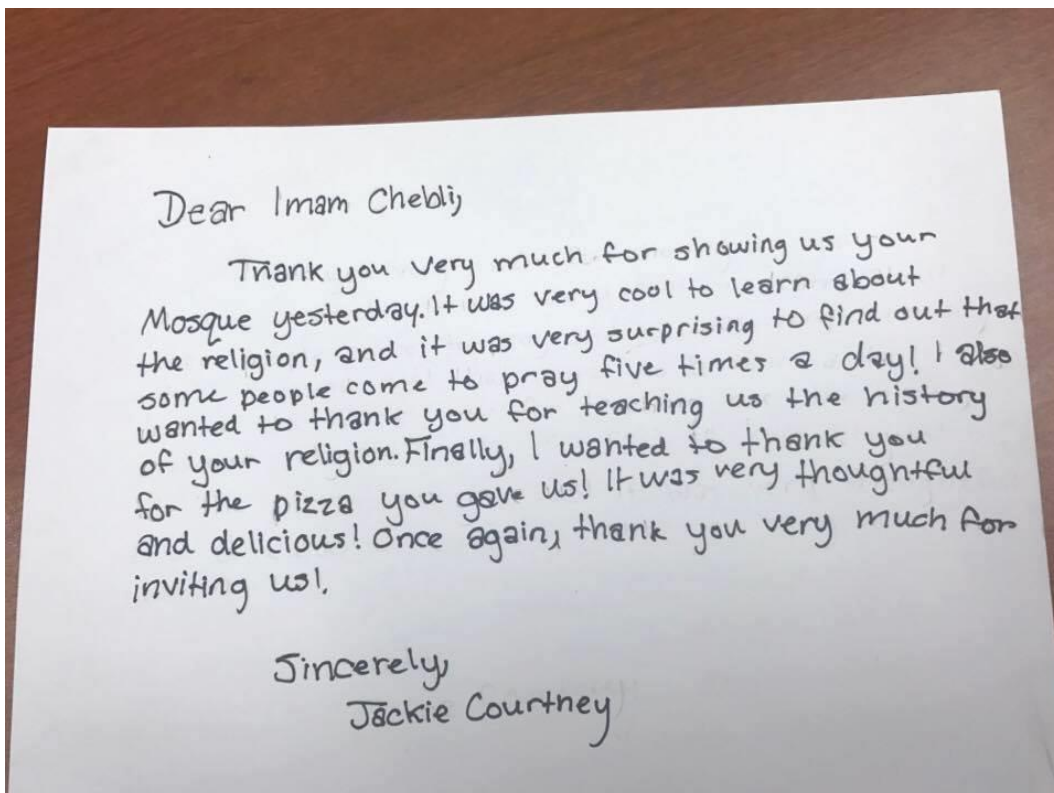 Dear Imam Chebli,
Thank you very much for showing us your
Mosque yesterday. It was very cool to learn about
the religion, and it was very surprising to find out that
some people come to pray five times a day! I also
wanted to thank you for teaching us the history
of your religion. Finally, I wanted to thank you
for the pizza you gave us! It was very thoughtful
and delicious! Once again, thank you very much for
inviting us!
Sincerely,
Jackie Courtney